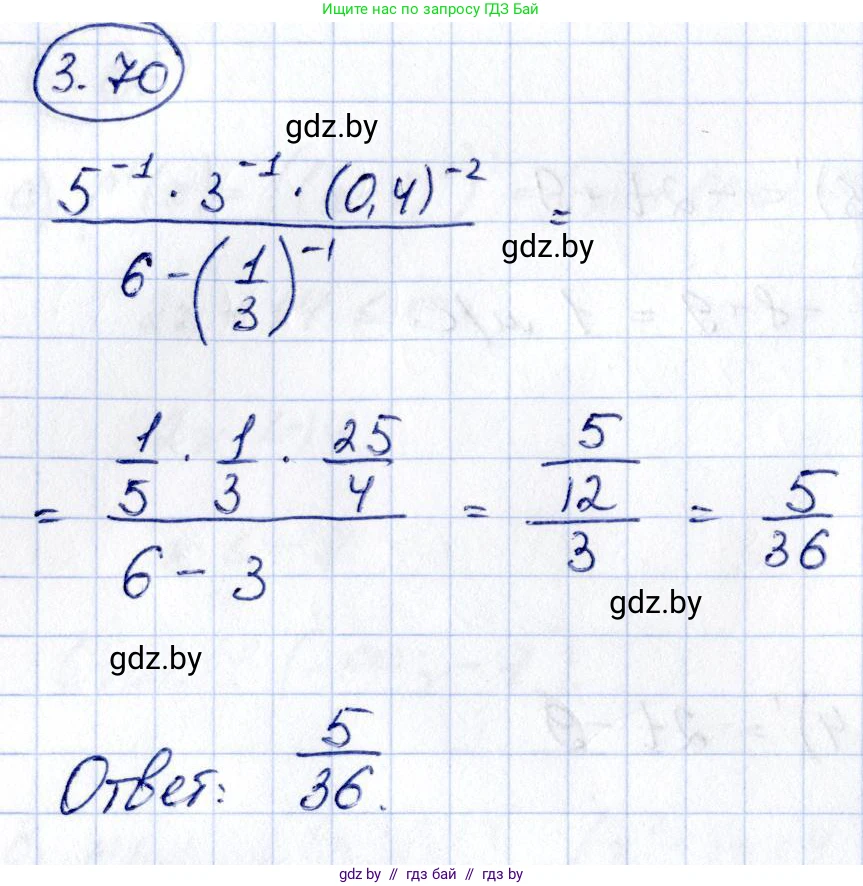 Ищите нас по запросу ГДЗ Бай
3.70
gdz.by
5^{-1} · 3^{-1} · (0,4)^{-2} / 6 - (1/3)^{-1} =
gdz.by
= 1/5 · 1/3 · 25/4 / 6 - 3 = 5/12 / 3 = 5/36
gdz.by
gdz.by
Ответ: 5/36.
gdz.by // гдз бай // гдз by